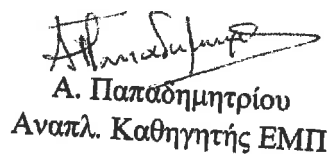 Α. Παπαδημητρίου
Αναπλ. Καθηγητής ΕΜΠ